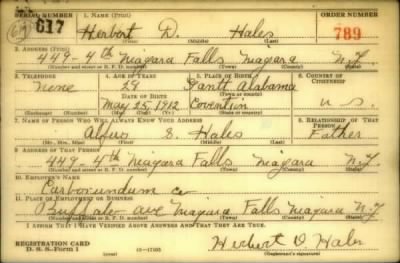 SERIAL NUMBER 1. NAME (Print) ORDER NUMBER
617 Herbert D. Hales 789
(First) (Middle) (Last)
2. ADDRESS (Print)
449-4th Niagara Falls Niagara N.Y.
(Number and street or R. F. D. number) (Town) (County) (State)
3. TELEPHONE 4. AGE IN YEARS 5. PLACE OF BIRTH 6. COUNTRY OF CITIZENSHIP
None 28 Gantt Alabama
DATE OF BIRTH (Town or county)
May 25, 1912 Covington U.S.
7. NAME OF PERSON WHO WILL ALWAYS KNOW YOUR ADDRESS 8. RELATIONSHIP OF THAT PERSON
S. Hales Father
(Mr., Mrs., Miss) (First) (Middle) (Last)
9. ADDRESS OF THAT PERSON
449-4th Niagara Falls Niagara N.Y.
(Number and street or R. F. D. number) (Town) (County) (State)
10. EMPLOYER'S NAME
Carborundum Co
11. PLACE OF EMPLOYMENT OR BUSINESS
Buffalo ave Niagara Falls Niagara N.Y.
(Number and street or R. F. D. number) (Town) (County) (State)
I AFFIRM THAT I HAVE VERIFIED ABOVE ANSWERS AND THAT THEY ARE TRUE.
REGISTRATION CARD
D. S. S. Form 1 16-17105 Herbert D Hales
(Registrant's signature)